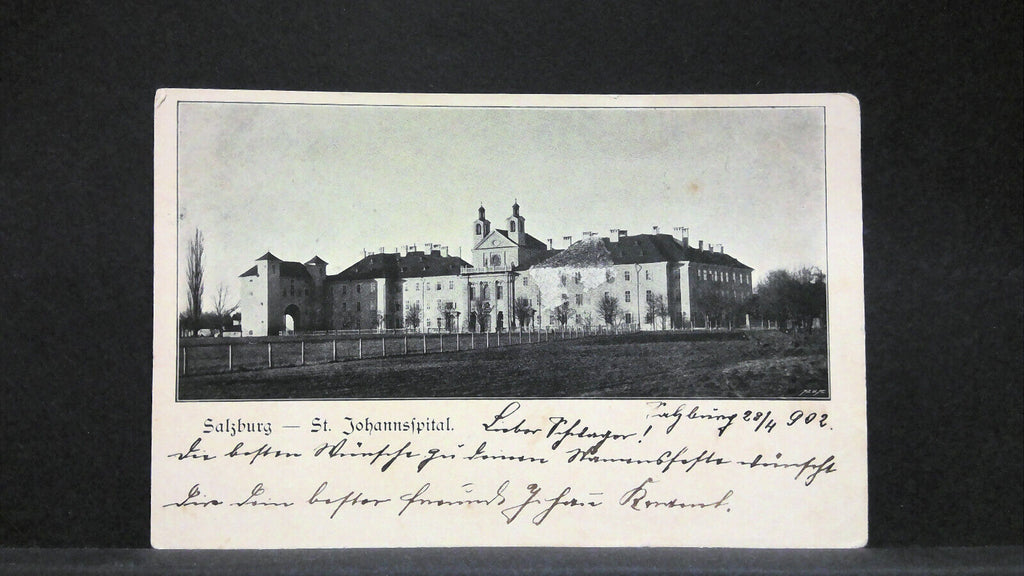 Salzburg — St. Johannsspital.
Salzburg 28/4 902.
Lieber Schlager!
die besten Wünsche zu deinem Namensfeste wünscht
Dir dein bester Freund Johann